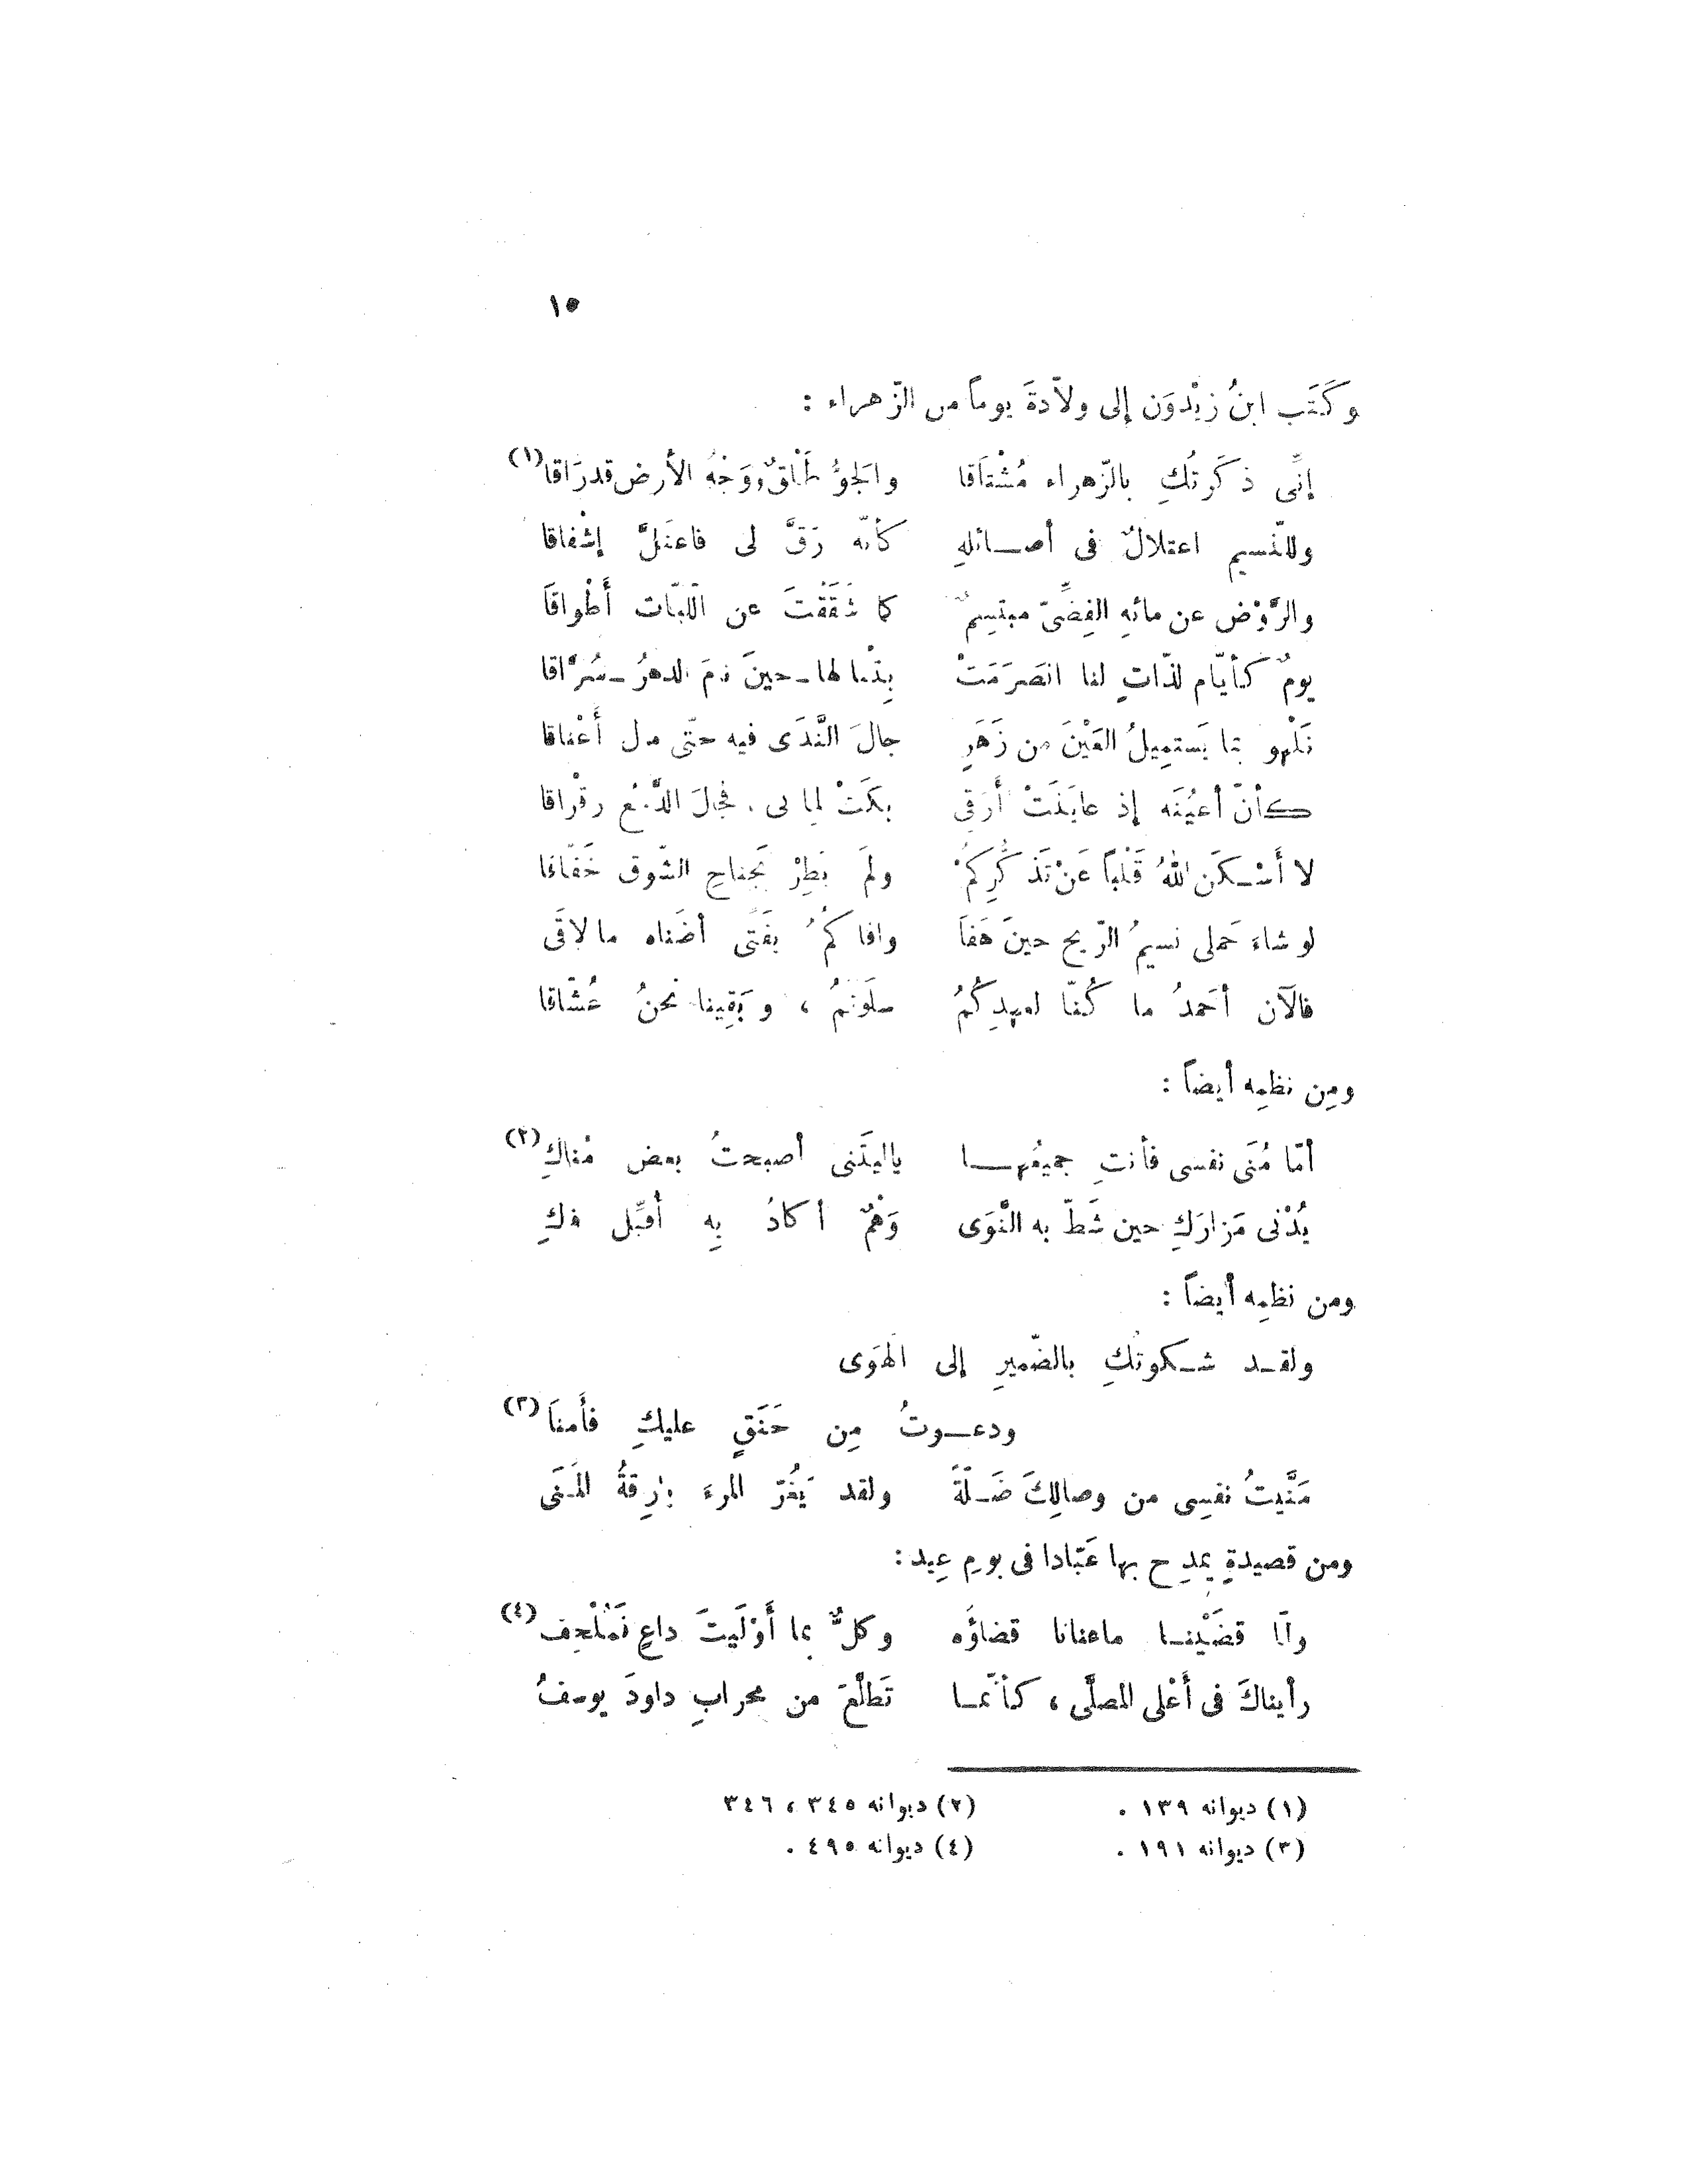 ١٥
وكَتَب ابنُ زيْدوَن إلى ولاّدةَ يوماً من الزّهراء :
إنِّى ذكَرتُكِ بالزّهراء مُشْتاَقا والجوُّ طَلْقٌ ووَجْهُ الأرض قد رَاقا (١)
وللنّسيم اعتلالٌ فى أصـائلهِ كأنّه رَقَّ لى فاعتَلَّ إشْفاقا
والرَّوْض عن مائهِ الفِضِّىّ مبتسِمٌ كما شَقَقْتَ عن اللّبّات أَطْواقاَ
يومٌ كأيّام لذّاتٍ لنا انصَرَمَتْ بِتْنا لها ـ حينَ نامَ الدهرُ ـ سُرَّاقا
نَلْهو بما يَستمِيلُ العَيْنَ من زَهَرٍ جالَ النَّدَى فيه حتّى مال أَعْناقا
كأنّ أعيُنَه إذ عايَنَتْ أَرَقِى بكَتْ لِما بى . فجالَ الدَّمْعُ رقْراقا
لا أَسْـكَن اللهُ قَلْباً عَنْ تَذكُّرِكمْ ولمَ يَطِرْ بَجناحِ الشّوق خَفّاقا
لو شاءَ حَملى نسيمُ الرّيح حينَ هَفاَ وافاكُمُ بفَتًى أضَناه ما لاقَى
فالآن أحَمدُ ما كُنّا لعهدِكُمُ سلَوتمُ ، وبَقِينا نحنُ عُشّاقا
ومِن نظمِه أيضاً :
أمّا مُنَى نفسى فأنتِ جميعُهـا ياليتَنى أصبحتُ بعض مُناكِ (٢)
يُدْنى مَزارَكِ حين شَطّ به النَّوَى وَهْمٌ أكادُ بِه أقبِّل فاكِ
ومن نظمِه أيضاً :
ولقـد شـكوتُكِ بالضّميرِ إلى الهَوَى
ودعـوتُ مِن حَنَقٍ عليكِ فأَمناَ (٣)
مَنَّيتُ نفسِى من وصالِكَ ضَـلّةً ولقد يَغُرّ المرءَ بارِقةُ المنَى
ومن قصيدةٍ يمدِح بها عَبّادا فى يومِ عِيد :
ولمّا قضَيْنـا ماعنانا قضاؤه وكلٌّ بما أَوْلَيتَ داعٍ فمُلْحِف (٤)
رأيناكَ فى أَعْلى المصلَّى ، كأنّمـا تَطلَّعَ من محرابِ داودَ يوسفُ
(١) ديوانه ١٣٩ . (٢) ديوانه ٣٤٥ ، ٣٤٦
(٣) ديوانه ١٩١ . (٤) ديوانه ٤٩٥ .